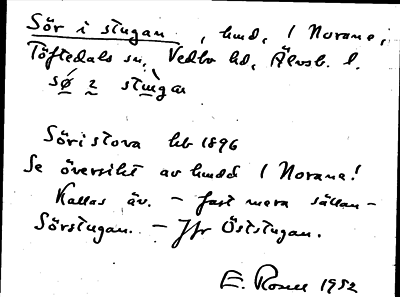 Sör i stugan, hmd, / Norane,
Töftedals sn, Vedbo hd, Älvsb. l.
sø 2 stu̇gan
Söri stova hb 1896
Se översikt av hmdd / Norane!
Kallas äv. – fast mera sällan –
Sörstugan. – Jfr Öststugan.
E. Rosell 1952